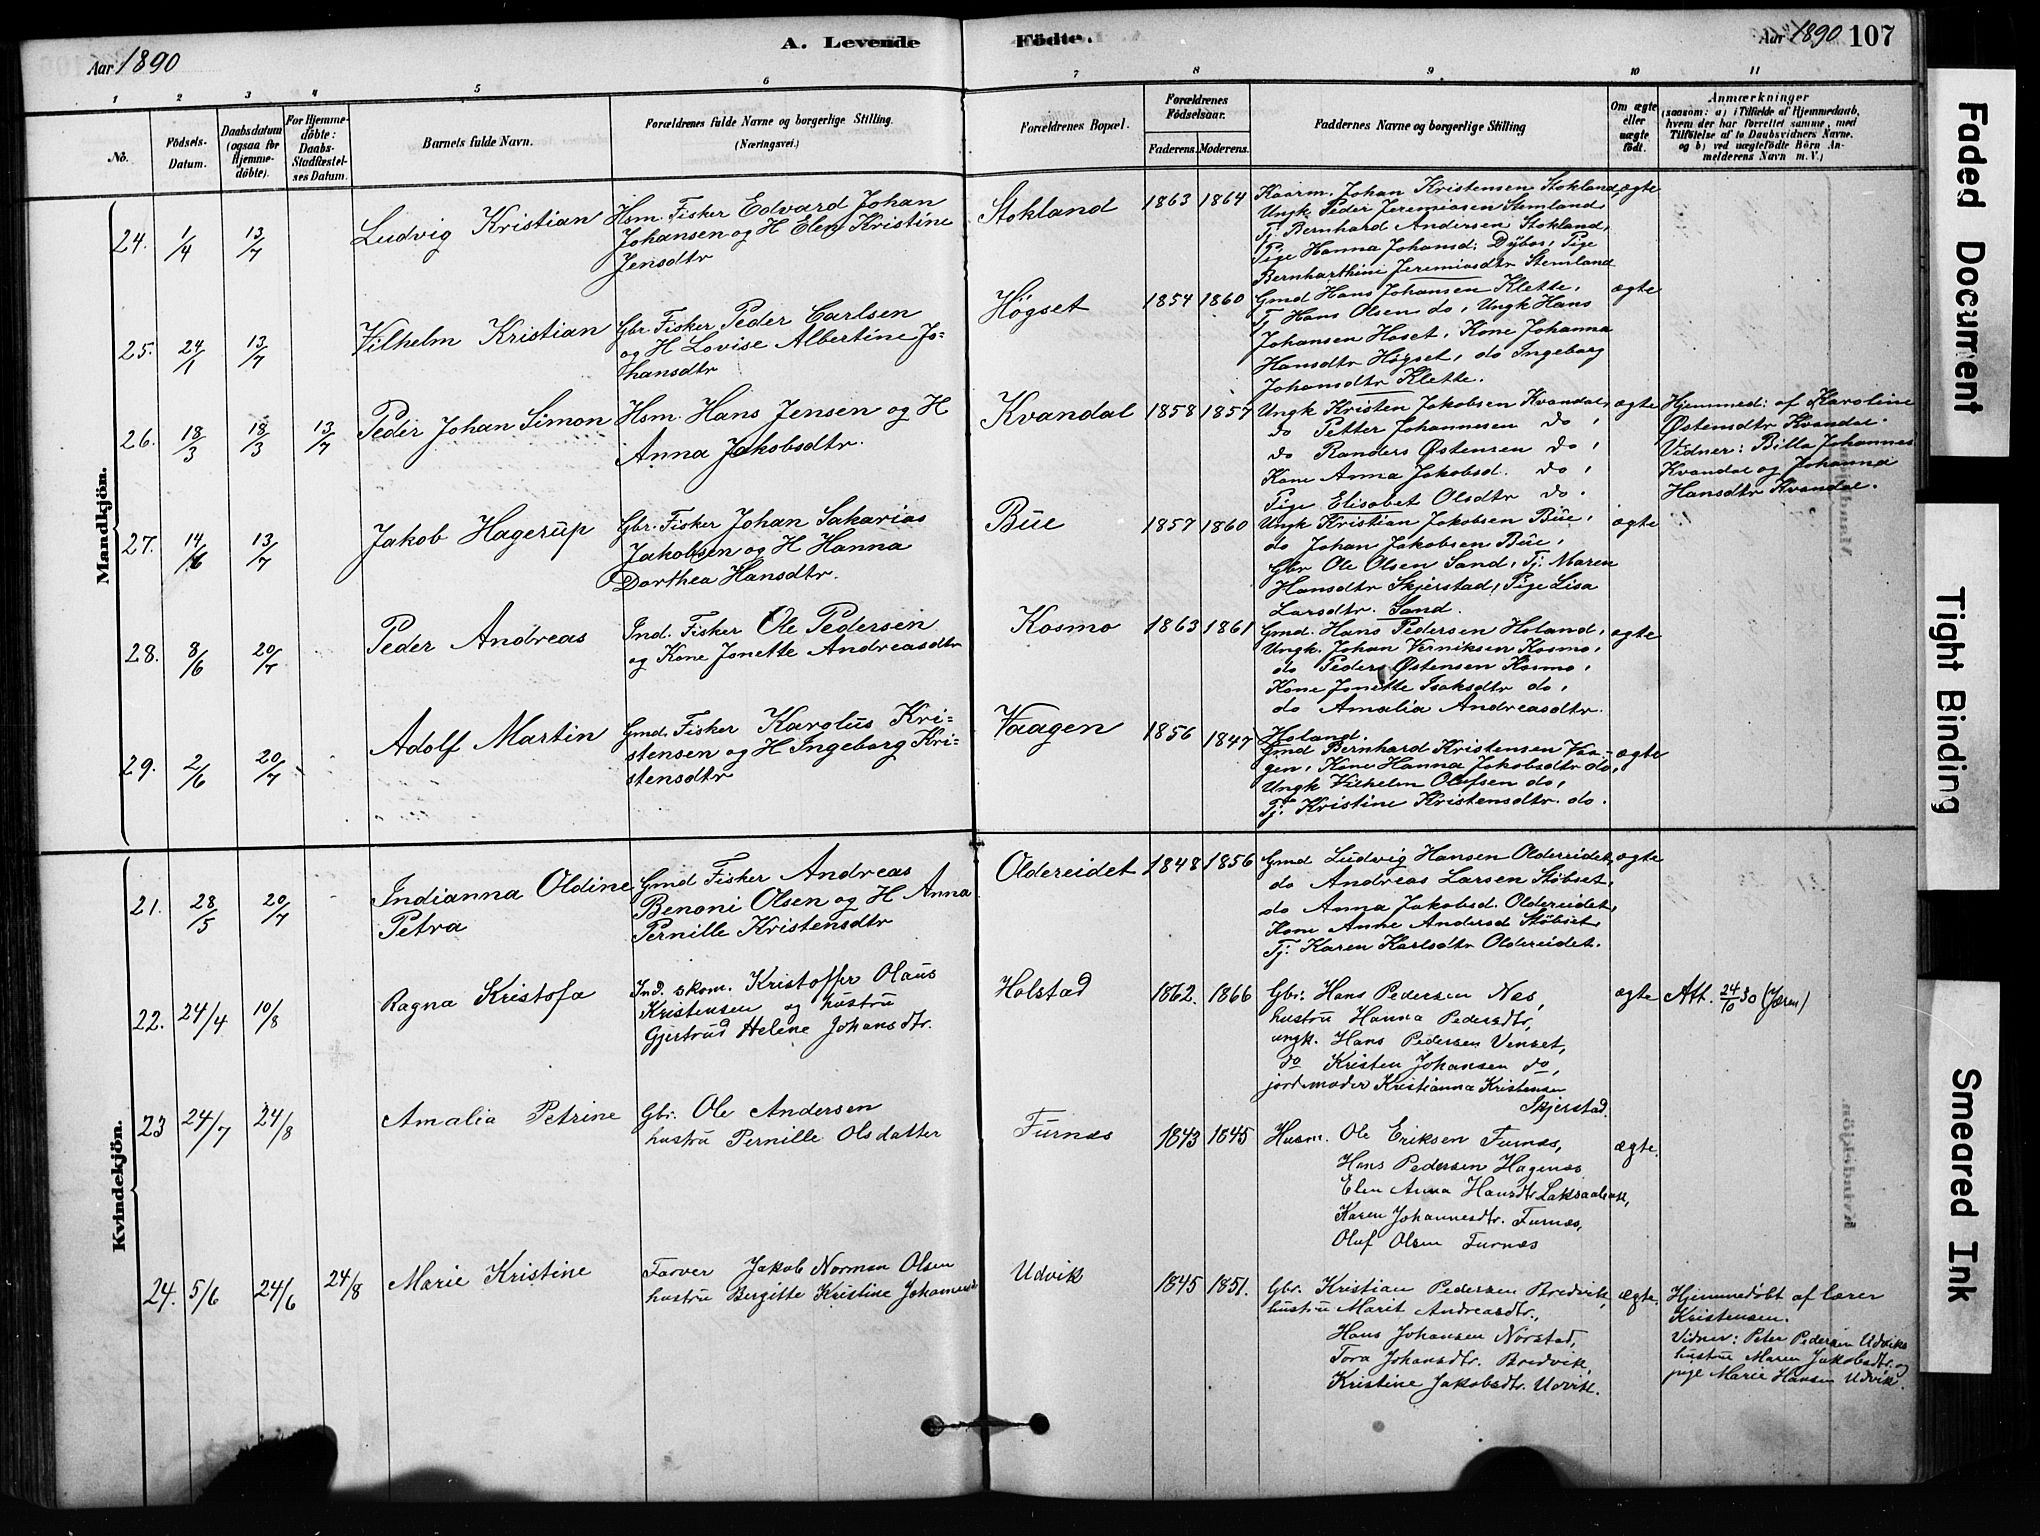 Aar 1890
A. Levende
Födte.
Aar 1890 107
1 2 3 4 5 6 7 8 9 10 11
No.
Födsels-
Datum.
Daabsdatum
(ogsaa for
Hjemme-
döbte).
For Hjemme-
döbte:
Daabs-
Stadfæstel-
ses Datum.
Barnets fulde Navn.
Forældrenes fulde Navne og borgerlige Stilling.
(Næringsvei.)
Forældrenes Bopæl.
Forældrenes
Födselsaar.
Faderens. Moderens.
Faddernes Navne og borgerlige Stilling
Om ægte
eller
uægte
födt.
Anmærkninger
(saasom: a) i Tilfælde af Hjemmedaab,
hvem der har forrettet samme, med
Tilföielse af to Daabsvidners Navne.
og b) ved uægtefödte Börn An-
melderens Navn m. V.)
Mandkjön.
24. 1/4 13/7
Ludvig Kristian
Hsm. Fisker Edvard Johan
Johansen og H Elen Kristine
Jensdtr
Stokland
1863 1864
Kaarm. Johan Kristensen Stokland,
Ungk. Peder Jeremiasen Stemland,
Tj. Bernhard Andersen Stokland,
Pige Hanna Johansd: Dybos, Pige
Bernharthine Jeremiasdtr Stemland
ægte
25. 24/1 13/7
Vilhelm Kristian
Gbr Fisker Peder Carlsen
og H Lovise Albertine Jo-
hansdtr
Högset
1854 1860
Gmd Hans Johansen Klette,
Tj Hans Olsen do, Ungk Hans
Johansen Hoset, Kone Johanna
Hansdtr Högset, do Ingeborg
Johansdtr Klette.
ægte
26. 18/3 18/3 13/7
Peder Johan Simon
Hsm. Hans Jensen og H
Anna Jakobsdtr.
Kvandal
1858 1857
Ungk Kristen Jakobsen Kvandal,
do Petter Johannesen do,
do Randers Østensen do,
Kone Anna Jakobsd. do,
Pige Elisabet Olsdtr do.
ægte
Hjemmed: af Karoline
Østensdtr Kvandal.
Vidner: Billa Johannes
Kvandal og Johanna
Hansdtr Kvandal.
27. 14/6 13/7
Jakob Hagerup
Gbr. Fisker Johan Sakarias
Jakobsen og H Hanna
Dorthea Hansdtr.
Büe
1857 1860
Ungk Kristian Jakobsen Büe,
do Johan Jakobsen Büe,
Gbr Ole Olsen Sand, Tj. Maren
Hansdtr Skjerstad, Pige Lisa
Larsdtr. Sand.
ægte
28. 8/6 20/7
Peder Andreas
Ind. Fisker Ole Pedersen
og Kone Jonette Andreasdtr
Kosmo
1863 1861
Gmd. Hans Pedersen Holand,
Ungk. Johan Verniksen Kosmo,
do Peder Østensen Kosmo,
Kone Jonette Isaksdtr do,
do Amalia Andreasdtr.
Holand.
ægte
29. 2/6 20/7
Adolf Martin
Gmd. Fisker Karglus Kri-
stensen og H Ingeborg Kri-
stensdtr
Vaagen
1856 1847
Gmd Bernhard Kristensen Vaa-
gen, Kone Hanna Jakobsdtr do,
Ungk Vilhelm Olufsen do,
Tj. Kristine Kristensdtr. do.
ægte
Kvindekjön.
21. 28/5 20/7
Indianna Oldine
Petra
Gmd Fisker Andreas
Benoni Olsen og H Anna
Pernille Kristensdtr
Oldereidet
1848 1856
Gmd Ludvig Hansen Oldereidet,
do Andreas Larsen Stöbset,
do Anna Jakobsd. Oldereidet,
Kone Anne Andersd Stöbset,
Tj. Karen Karlsdtr Oldereidet.
ægte
22. 24/4 10/8
Ragna Kristofa
Ind. skom. Kristoffer Olaus
Kristensen og hustru
Gjertrud Helene Johansdtr.
Holstad
1862. 1866
Gbr. Hans Pedersen Nes,
hustru Hanna Pedersdtr,
ungk. Hans Pedersen Venset,
do Kristen Johansen do,
jordemoder Kristianna Kristensen
Skjerstad.
ægte
Att. 24/10 30 (Jæren)
23 24/7 24/8
Amalia Petrine
Gbr. Ole Andersen
hustru Pernille Olsdatter
Furnes
1843 1845
Husm. Ole Eriksen Furnes,
Hans Pedersen Hagenes
Elen Anna Hansdtr
Karen Johannesdtr. Furnes,
Oluf Olsen Furnes
ægte.
24. 5/6 24/6 24/8
Marie Kristine
Farver Jakob Norman Olsen
hustru Bergitte Kristine Johannesd
Udvik
1845 1851.
Gbr. Kristian Pedersen Bredvik,
hustru Marit Andreasdtr.,
Hans Johansen Nörstad,
Tora Johansdtr. Bredvik,
Kristine Jakobsdtr. Udvik.
ægte.
Hjemmedöbt af lærer
Kristensen.
Vidner: Peter Pedersen Udvik
hustru Maren Jakobsdtr. og
pige Marie Hansen Udvik.
Faded Document
Tight Binding
Smeared Ink